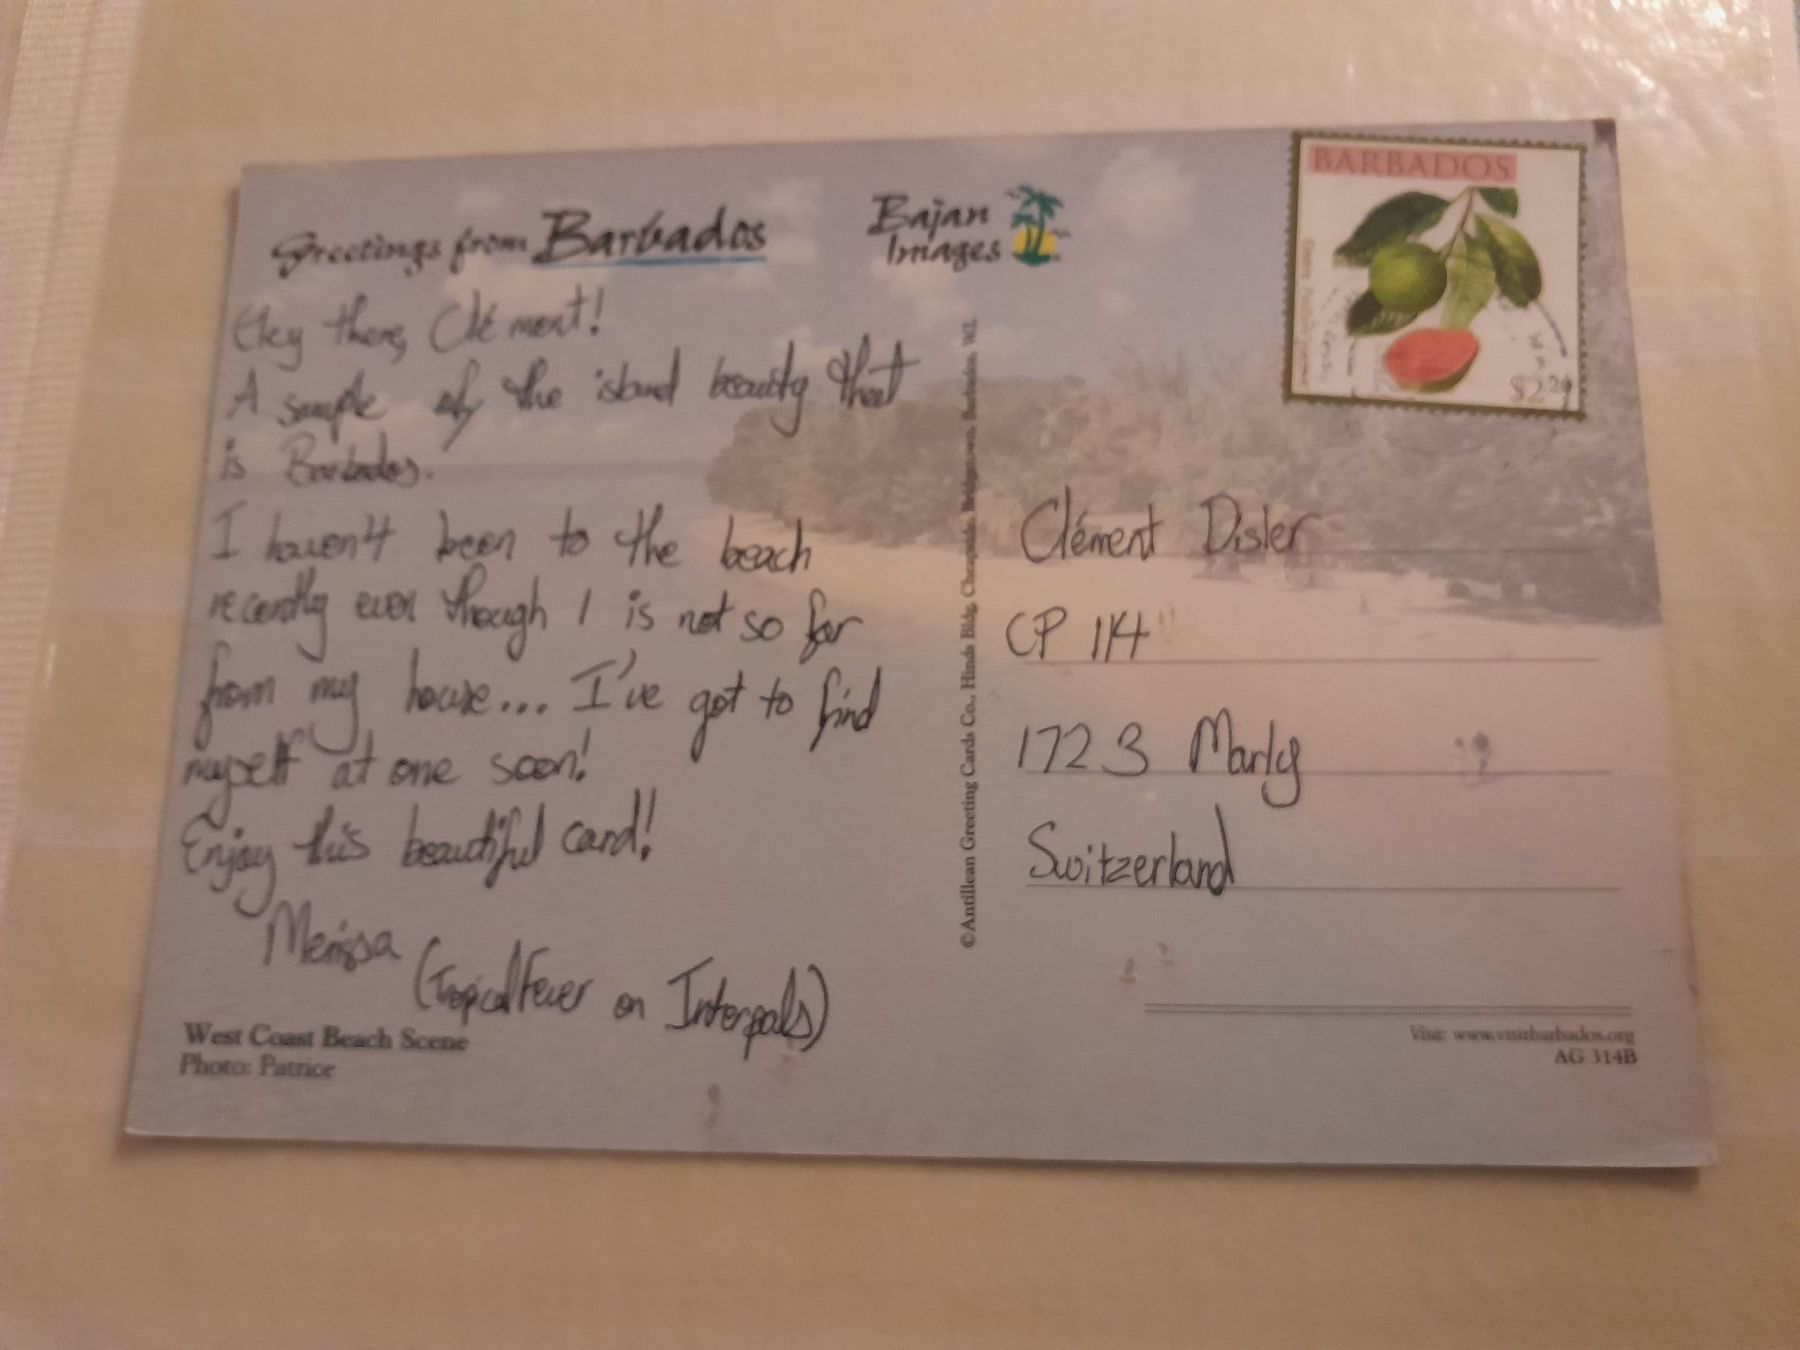 Greetings from Barbados
Bajan
Images
BARBADOS
$2.20
Hey there, Clément!
A sample of the island beauty that
is Barbados.
I haven't been to the beach
recently even though 1 is not so far
from my house... I've got to find
myself at one soon!
Enjoy this beautiful card!
Merissa
(TropicalFever on Interpals)
West Coast Beach Scene
Photo: Patrice
©Antillean Greeting Cards Co., Hinds Bldg, Cheapside, Bridgetown, Barbados, W.I.
Clément Disler
CP 114
1723 Marly
Switzerland
Visit: www.visitbarbados.org
AG 314B